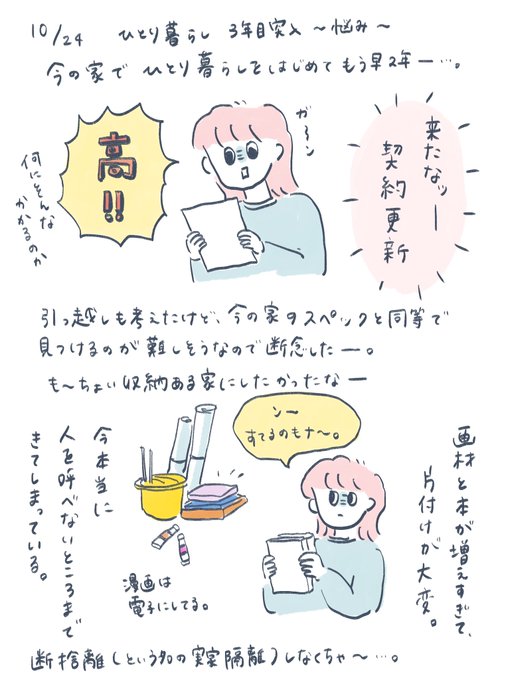 10/24 ひとり暮らし 3年目突入 〜悩み〜
今の家で ひとり暮らしをはじめて もう早2年ー…。
来たなッー
契約更新
ガーン
高!!
何にそんな
かかるのか
引っ越しも考えたけど、今の家のスペックと同等で
見つけるのが難しそうなので断念したー。
も〜ちょい収納ある家にしたかったなー
画材と本が増えすぎて、
片付けが大変。
ンー
すてるのもナ〜。
今本当に
人を呼べないところまで
きてしまっている。
漫画は
電子にしてる。
断捨離(という名の実家隔離)しなくちゃ〜…。